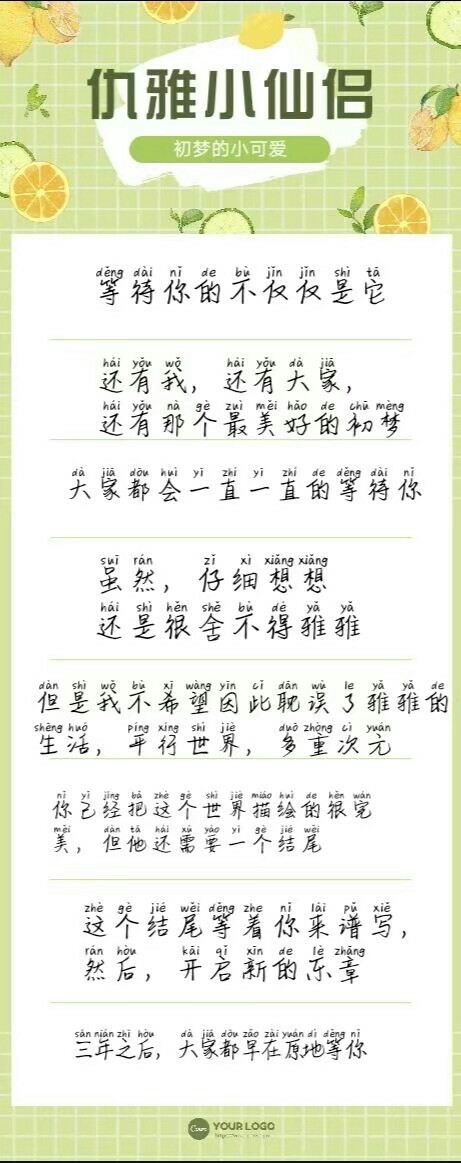 仇雅小仙侣
初梦的小可爱
děng dài nǐ de bù jǐn jǐn shì tā
等待你的不仅仅是它
hái yǒu wǒ hái yǒu dà jiā
还有我，还有大家，
hái yǒu nà gè zuì měi hǎo de chū mèng
还有那个最美好的初梦
dà jiā dōu huì yī zhí yī zhí de děng dài nǐ
大家都会一直一直的等待你
suī rán zǐ xì xiǎng xiǎng
虽然，仔细想想
hái shì hěn shě bù dé yǎ yǎ
还是很舍不得雅雅
dàn shì wǒ bù xī wàng yīn cǐ dān wù le yǎ yǎ de
但是我不希望因此耽误了雅雅的
shēng huó píng xíng shì jiè duō zhòng cì yuán
生活，平行世界，多重次元
nǐ yǐ jīng bǎ zhè gè shì jiè miáo huì de hěn wán
你已经把这个世界描绘的很完
měi dàn tā hái xū yào yī gè jié wěi
美，但他还需要一个结尾
zhè gè jié wěi děng zhe nǐ lái pǔ xiě
这个结尾等着你来谱写，
rán hòu kāi qǐ xīn de lè zhāng
然后，开启新的乐章
sān nián zhī hòu dà jiā dōu zǎo zài yuán dì děng nǐ
三年之后，大家都早在原地等你
Canva YOUR LOGO